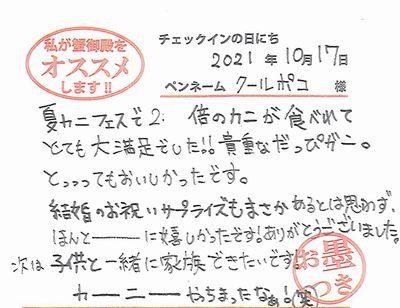 私が蟹御殿を
オススメ
します!!
チェックインの日にち
2021年10月17日
ペンネーム クールポコ 様
夏カニフェスで2倍のカニが食べれて
とても大満足でした!! 貴重なだっぴガニ。
とっっってもおいしかったです。
結婚のお祝いサプライズもまさかあるとは思わず、
ほんと━━━に嬉しかったです!ありがとうございました。
次は子供と一緒に家族できたいです!
カーニーやっちまったなぁ!(笑)
お墨
つき